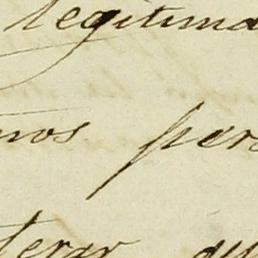 legitima
mos per
terar qu